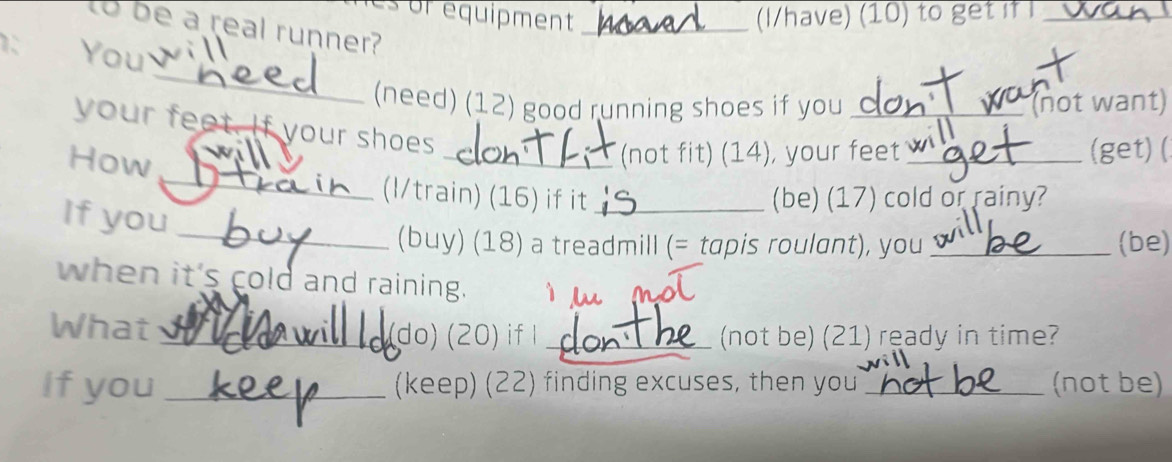 or equipment ______ (I/have) (10) to get it I
to be a real runner?
You will need (need) (12) good running shoes if you don't want (not want)
your feet. If your shoes don't fit (not fit) (14), your feet will get (get) (
How I will train (I/train) (16) if it is (be) (17) cold or rainy?
If you buy (buy) (18) a treadmill (= tapis roulant), you will be (be)
when it's cold and raining.
i'm not
What will I do (do) (20) if I don't be (not be) (21) ready in time?
if you keep (keep) (22) finding excuses, then you will not be (not be)